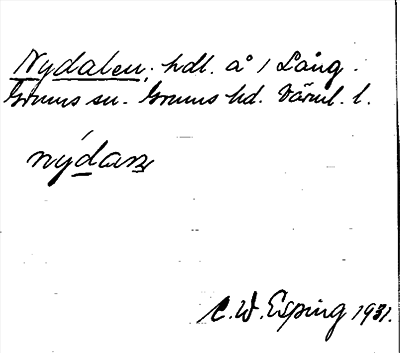 Nydalen; hdl. å 1 Lång.
Grums sn. Grums hd. Värml. l.
nýdaṉ
C. W. Esping 1931.